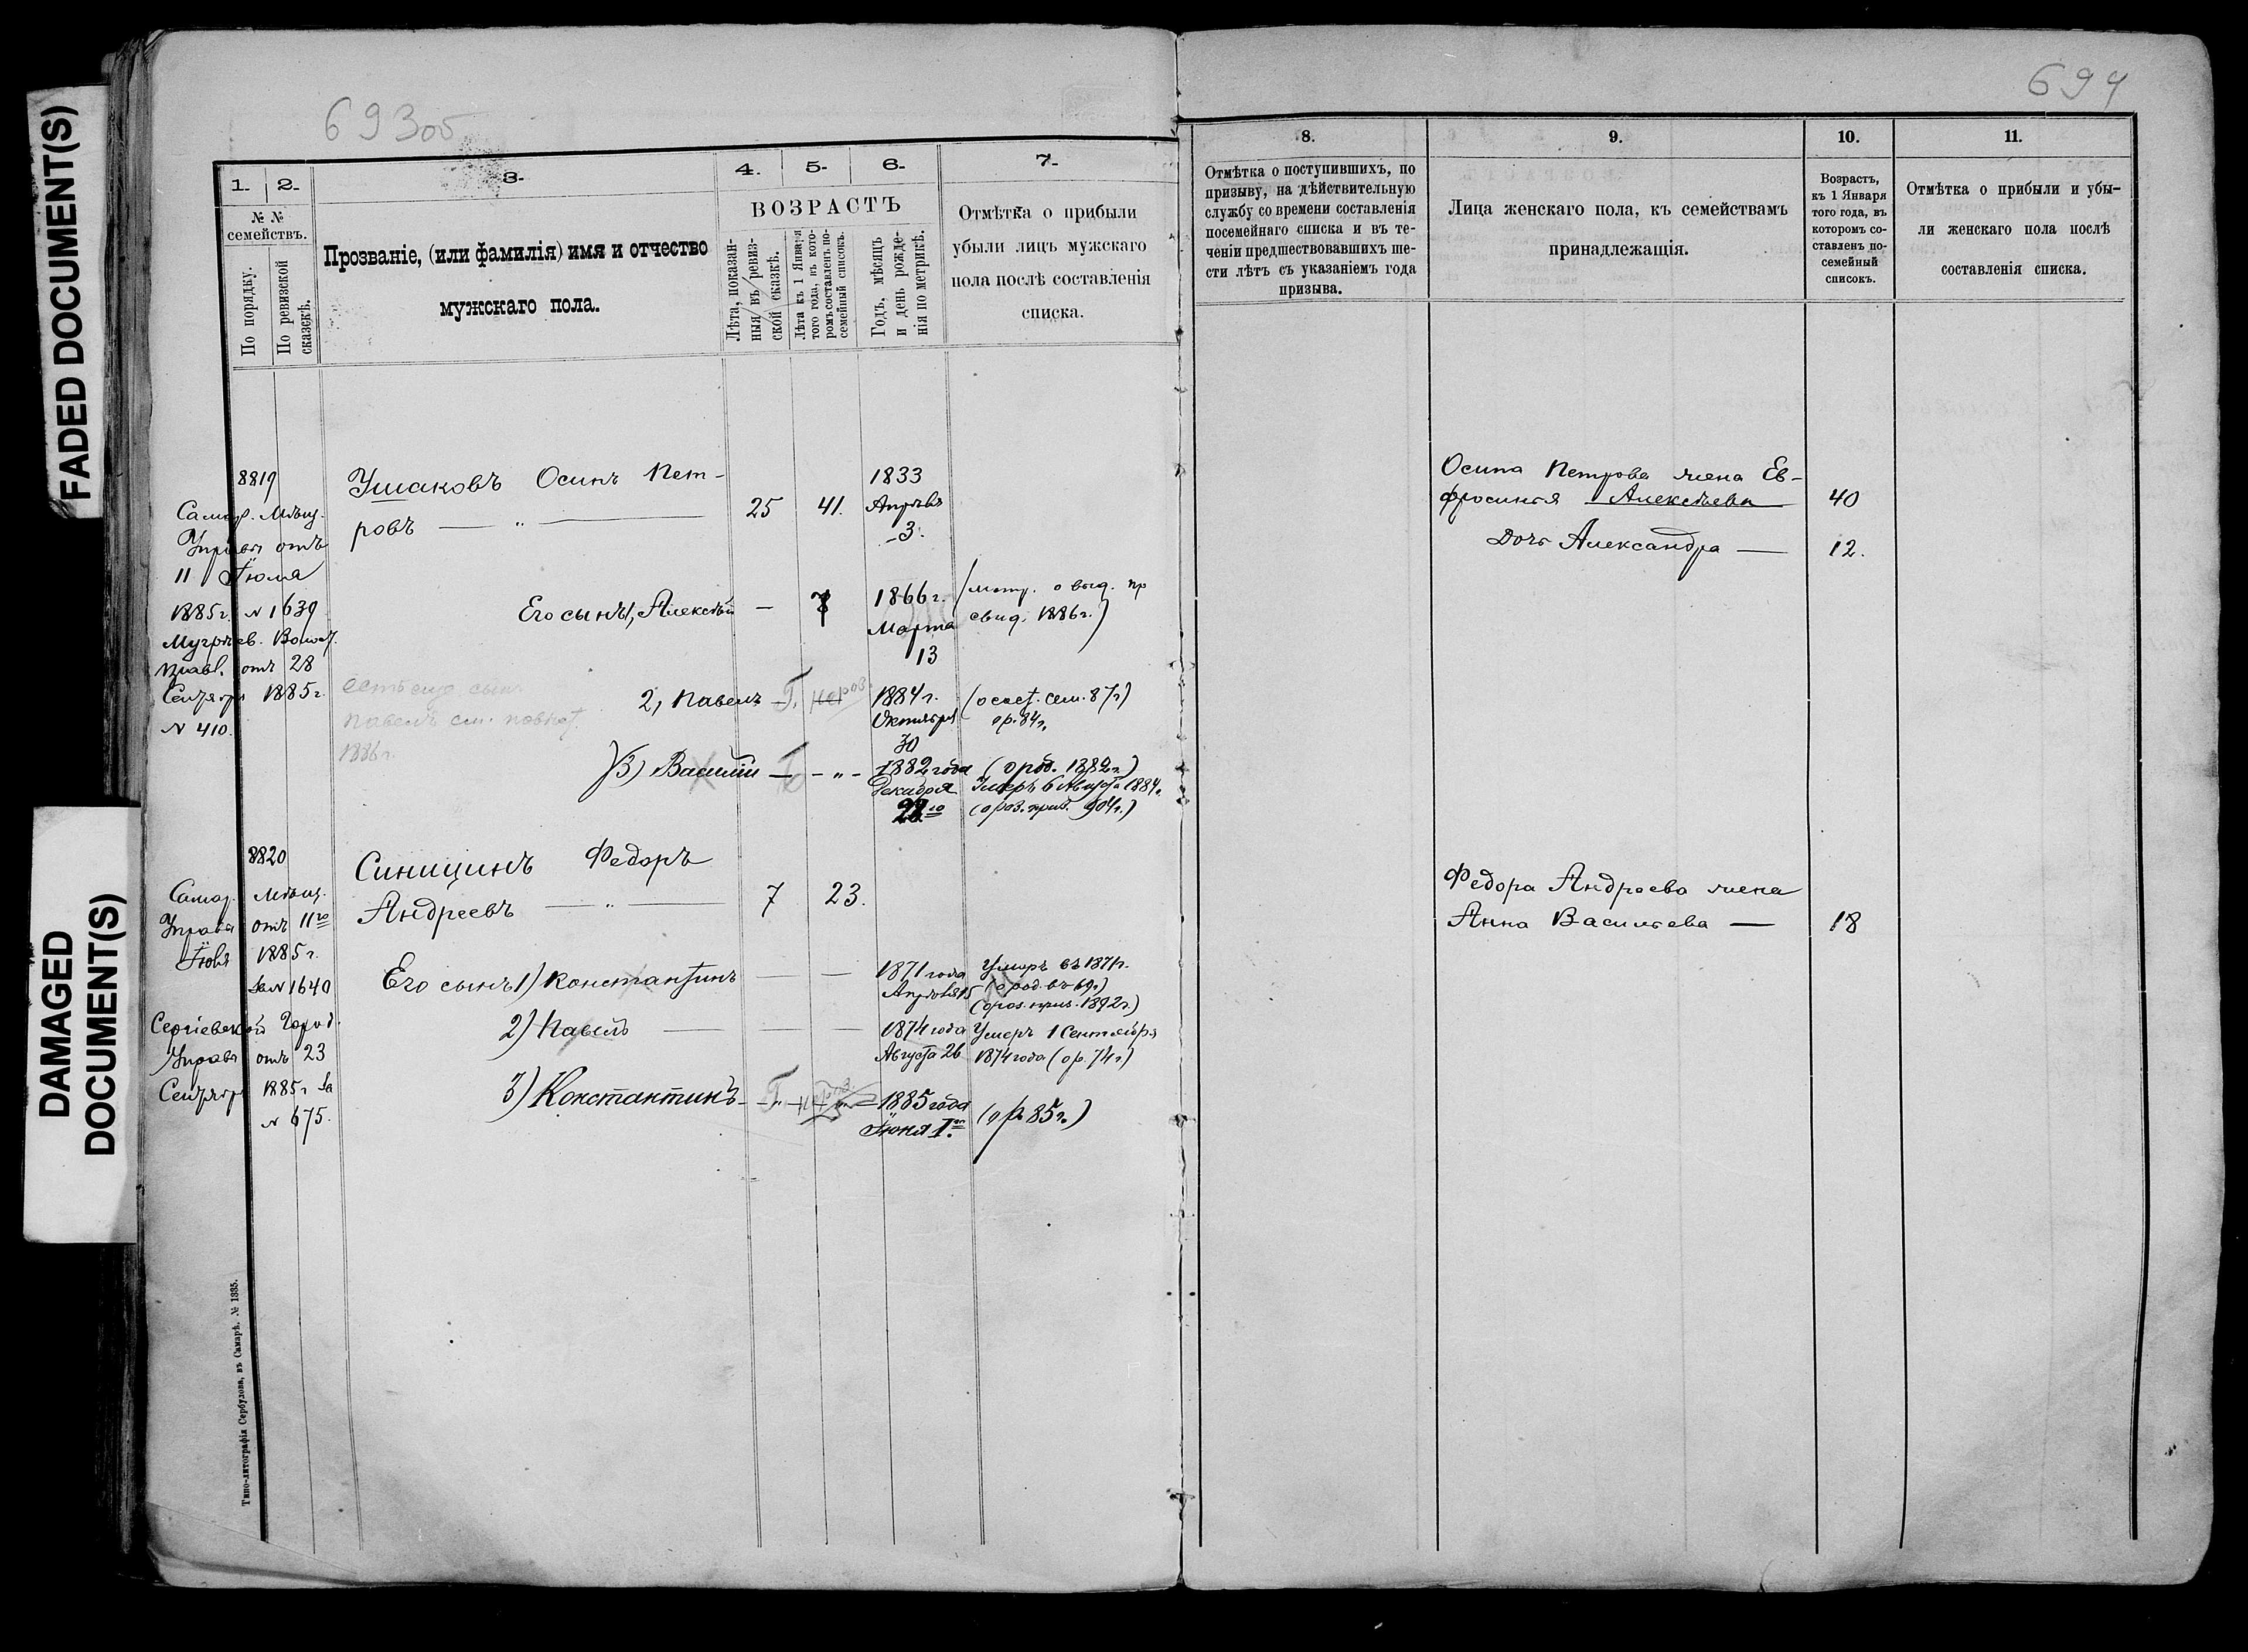 FADED DOCUMENT(S)
DAMAGED
DOCUMENT(S)
693об
1.
2.
3.
4.
5.
6.
7.
№ №
семействъ.
По порядку.
По ревизской
сказкѣ.
Прозваніе, (или фамилія) имя и отчество
мужскаго пола.
ВОЗРАСТЪ
Лѣта, показан-
ныя въ ревиз-
ской сказкѣ.
Лѣта къ 1 Января
того года, въ кото-
ромъ составленъ по-
семейный списокъ.
Годъ, мѣсяцъ
и день рожде-
нія по метрикѣ.
Отмѣтка о прибыли
убыли лицъ мужскаго
пола послѣ составленія
списка.
8819
Самар. Мѣщ.
Управы отъ
11
1885г. № 1639
Волост.
Правл. отъ 28
1885г.
№ 410.
Ушаковъ Осипъ Пет-
ровъ — „ —
25
41.
1833
3.
Его сынъ 1, Алексѣй —
7
1866г.
Марта
13
свид. 1886г.)
есть еще сынъ
Павелъ
1886г.
2, Павелъ — Г.
1884г.
Октября
30
сем. 87г)
ор. 84г.
3) Василій — Г — „ —
1882 года
Декабря
28го
(о род. 1882г.)
Умеръ 6 Августа 1884г.
(о роз. приз. 904г.)
8820
Самар. Мѣщ.
Управы отъ 11го
1885г.
За № 1640
Город.
Управы отъ 23
1885г За
№ 675.
Синицинъ Федоръ
Андреевъ — „ —
7
23.
Его сынъ 1) Константинъ — —
1871 года
Апрѣля 15
Умеръ въ 1871г.
(о род. въ 69г.)
(о роз. приз. 1892г.)
2) Павелъ — — —
1874 года
Августа 26
Умеръ 1 Сентября
1874 года (ор. 74г.)
3) Константинъ — Г
1885 года
Іюня 1го
(ор 85г.)
Типо-литографія Сербулова, въ Самарѣ. № 1335.
694
8.
9.
10.
11.
Отмѣтка о поступившихъ, по
призыву, на дѣйствительную
службу со времени составленія
посемейнаго списка и въ те-
ченіи предшествовавшихъ ше-
сти лѣтъ съ указаніемъ года
призыва.
Лица женскаго пола, къ семействамъ
принадлежащія.
Возрастъ,
къ 1 Января
того года, въ
которомъ со-
ставленъ по-
семейный
списокъ.
Отмѣтка о прибыли и убы-
ли женскаго пола послѣ
составленія списка.
Осипа Петрова жена Ев-
фросинья Алексѣева
40
Дочь Александра —
12.
Федора Андреева жена
Анна Васильева —
18